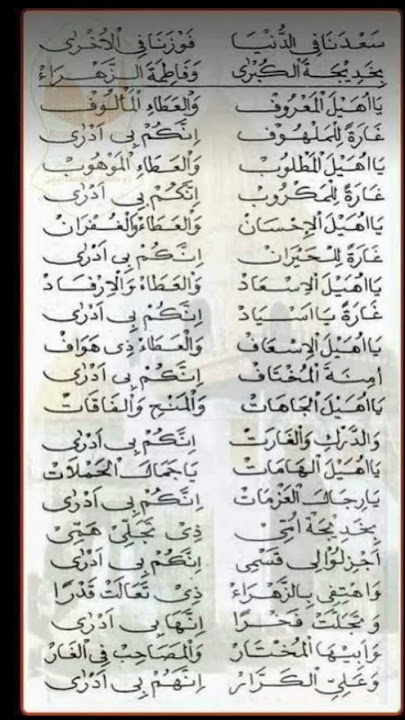 سَعْدَنَا فِى الدُّنْيَا فَوْزَنَا فِى الْاُخْرٰى
بِخَدِيْجَةَ الْكُبْرٰى وَفَاطِمَةَ الزَّهْرَاءْ
يَااُهَيْلَ الْمَعْرُوْفْ وَالْعَطَاءِ الْمَأْلُوْفْ
غَارَةً لِلْمَلْهُوْفْ اِنَّكُمْ بِى اَدْرٰى
يَااُهَيْلَ الْمَطْلُوْبْ وَالْعَطَاءِ الْمَوْهُوْبْ
غَارَةً لِلْمَكْرُوْبْ اِنَّكُمْ بِى اَدْرٰى
يَااُهَيْلَ الْاِحْسَانْ وَالْعَطَاءِ وَالْغُفْرَانْ
غَارَةً لِلْحَيْرَانْ اِنَّكُمْ بِى اَدْرٰى
يَااُهَيْلَ الْاِسْعَادْ وَالْعَطَاءْ وَالْاِرْفَادْ
غَارَةً يَااَسْيَادْ اِنَّكُمْ بِى اَدْرٰى
يَااُهَيْلَ الْاِسْعَافْ وَالْعَطَاءِ ذِى هَوَافْ
اَمِنَةَ الْمُخْتَافْ اِنَّكُمْ بِى اَدْرٰى
يَااُهَيْلَ الْجَاهَاتْ وَالْمَنْحِ وَالْفَاقَاتْ
وَالدَّرْكِ وَالْغَارَتْ اِنَّكُمْ بِى اَدْرٰى
يَااُهَيْلَ الْهَامَاتْ يَاجَمَالَ الْحَمْلَاتْ
يَارِجَالَ الْعَزْمَاتْ اِنَّكُمْ بِى اَدْرٰى
بِخَدِيْجَةْ اُمِّى ذِى تَجَلِّى هَمِّى
اَجْزِلُوْا لِى قَسْمِى اِنَّكُمْ بِى اَدْرٰى
وَاهْتِفِى بِالزَّهْرَاءْ ذِى تَعَالَتْ قَدْرًا
وَتَجَلَّتْ فَخْرًا اِنَّهَا بِى اَدْرٰى
وَاَبِيْهَا الْمُخْتَارْ وَالْمُصَاحِبْ فِى الْغَارْ
وَعَلِىِّ الْكَرَّارْ اِنَّهُمْ بِى اَدْرٰى